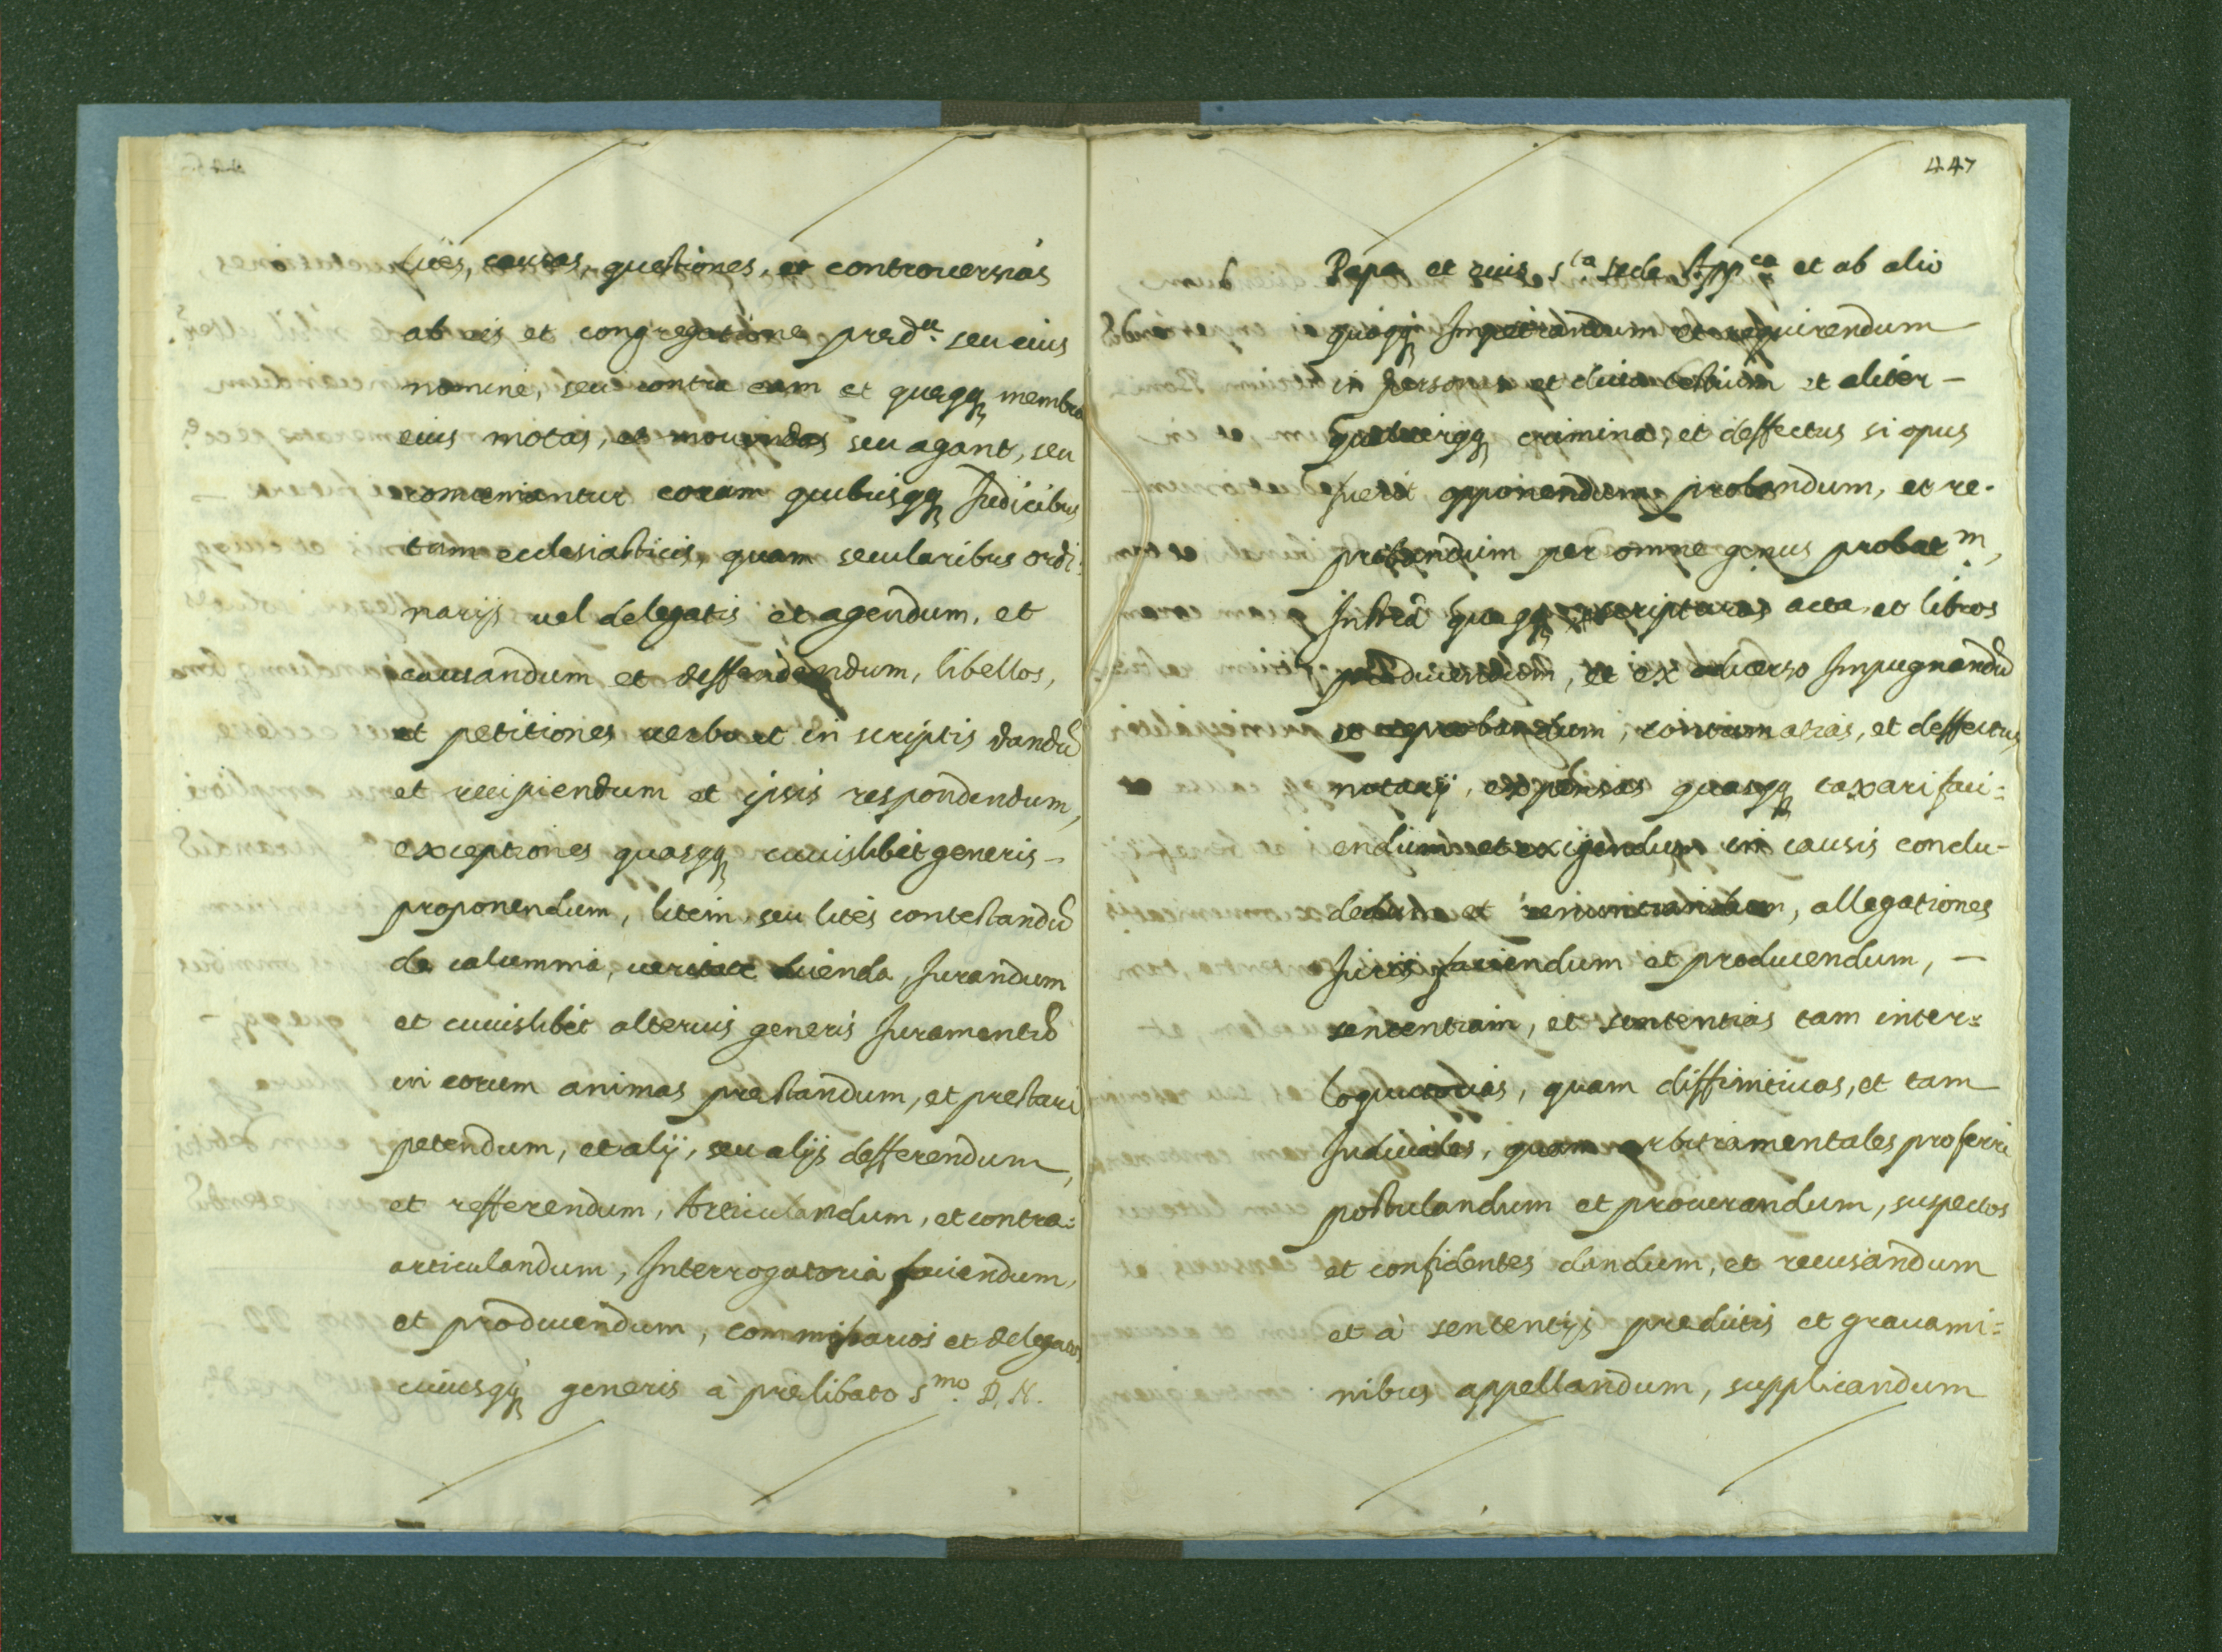 lites, causas, questiones, et controuersias
ab eis et congregatione pred.ᵃ seu eius
nomine, seu contra eam et quęqȝ membra
eius motas, et mouendas seu agant, seu
conueniantur coram quibusqȝ Judicibus
tam ecclesiasticis, quam secularibus ordi:
narijs uel delegatis et agendum, et
causandum et deffendendum, libellos,
et petitiones uerbo et in scriptis dandū
et recipiendum et ipsis respondendum,
exceptiones quasqȝ cuiuslibet generis -
proponendum, litem, seu lites contestandū
de calumnia, ueritate dicenda, Jurandum
et cuiuslibet alterius generis Juramentū
in eorum animas prestandum, et prestari
petendum, et alij, seu alijs defferendum,
et refferendum, Articulandum, et contra:
articulandum, Interrogatoria faciendum,
et producendum, commissarios et delegatos
cuiusqȝ generis à prelibato Sᵐᵒ. D. N.
447
Papa et eius Sᵗᵃ sede Appᶜᵃ et ab alio
quoqȝ Impetrandum et requirendum
in personas et dicta testium et aliter -
quecumqȝ crimina, et deffectus si opus
fuerit opponendum, probandum, et re-
probandum per omne genus probatᵐ,
Instrā quęqȝ, scripturas acta, et libros
producendum, et ex aduerso Impugnandū
et reprobandum, contumatias, et deffectus
notarij, expensas quasqȝ taxari faci:
endum et exigendum in causis conclu-
dedum et renuntiandum, allegationes
Juris faciendum et producendum, -
sententiam, et sententias tam inter:
loqutorias, quam diffinitiuas, et tam
Judiciales, quam arbitramentales proferri
postulandum et procurandum, suspectos
et confidentes dandum, et recusandum
et à sententijs predictis et grauami:
nibus appellandum, supplicandum